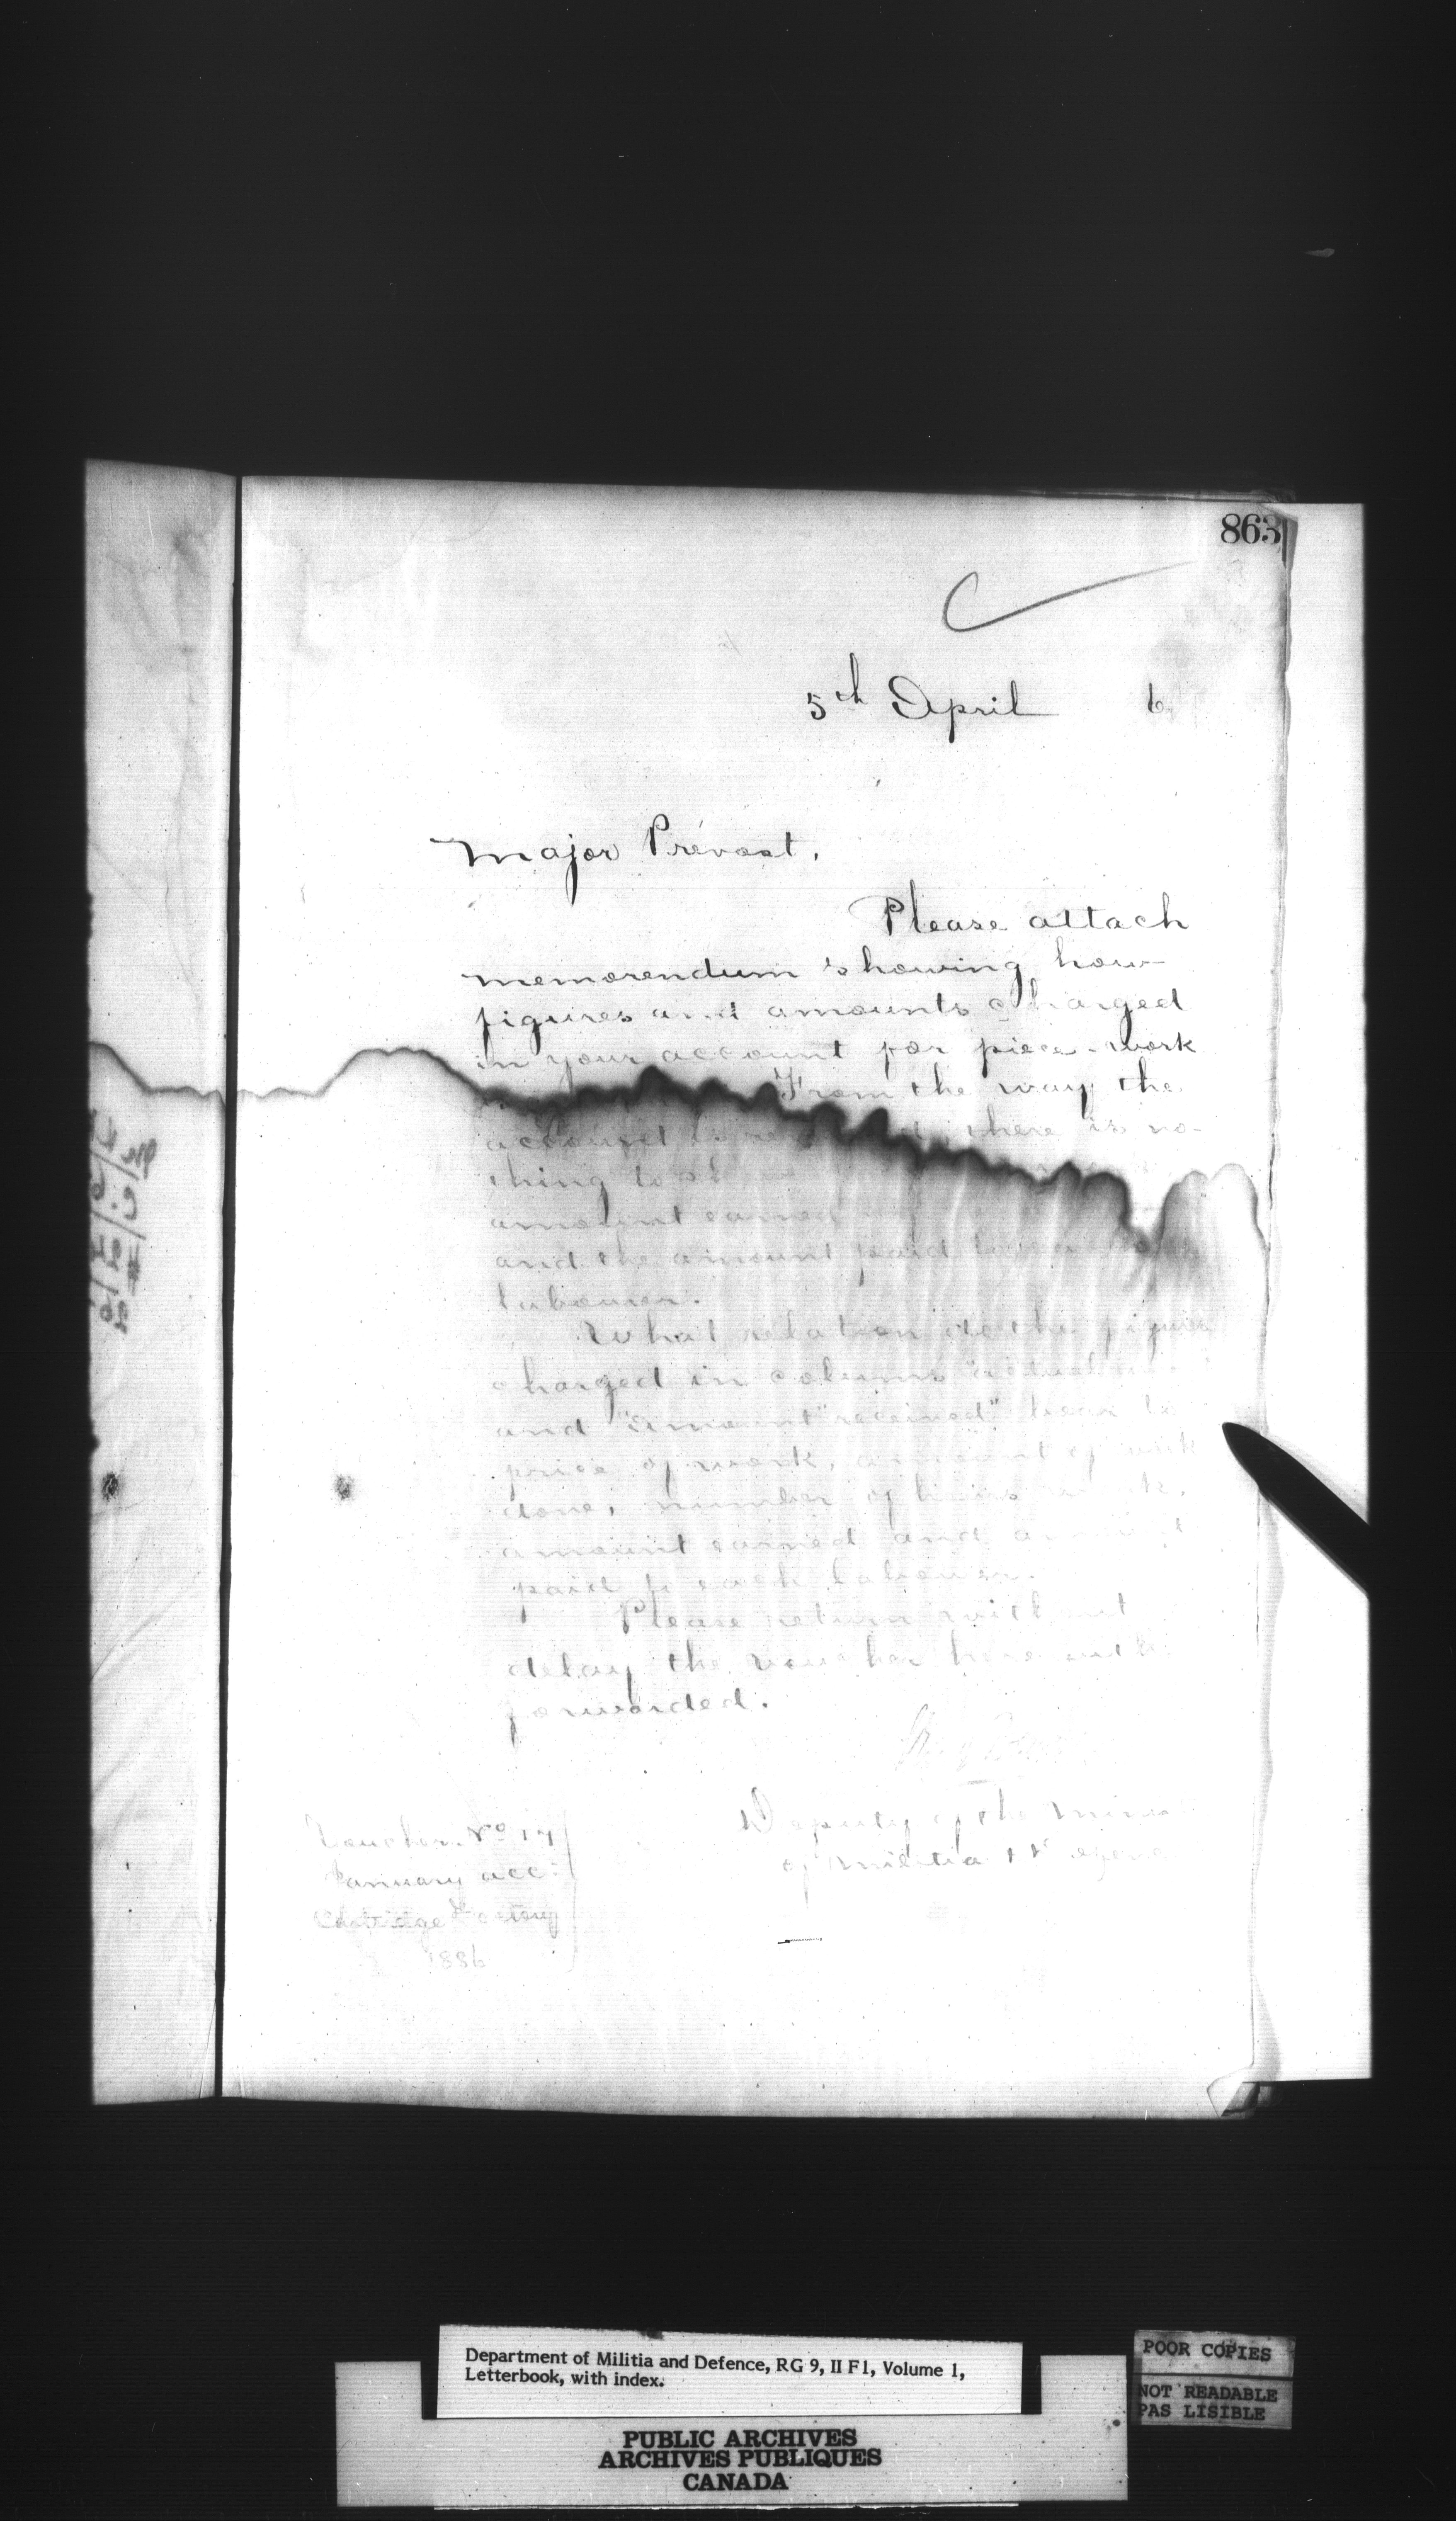 863
5th April 6
Major Prévost,
Please attach
memorendum showing how
figures and amounts charged
in your account for piece-work
From the way the
account is there is no-
thing to
amount earned
and the amount paid
labourer.
What relation do the figures
charged in column "actual
and "amount received" bear to
price of work, amount of work
done, number of hours work,
amount earned and amount
paid to each labourer.
Please return without
delay the voucher herewith
forwarded.
Deputy of the Minis
of Militia
Voucher No 17
January acc:
Cartridge Factory
1886
Department of Militia and Defence, RG 9, II F1, Volume 1,
Letterbook, with index.
PUBLIC ARCHIVES
ARCHIVES PUBLIQUES
CANADA
POOR COPIES
NOT READABLE
PAS LISIBLE